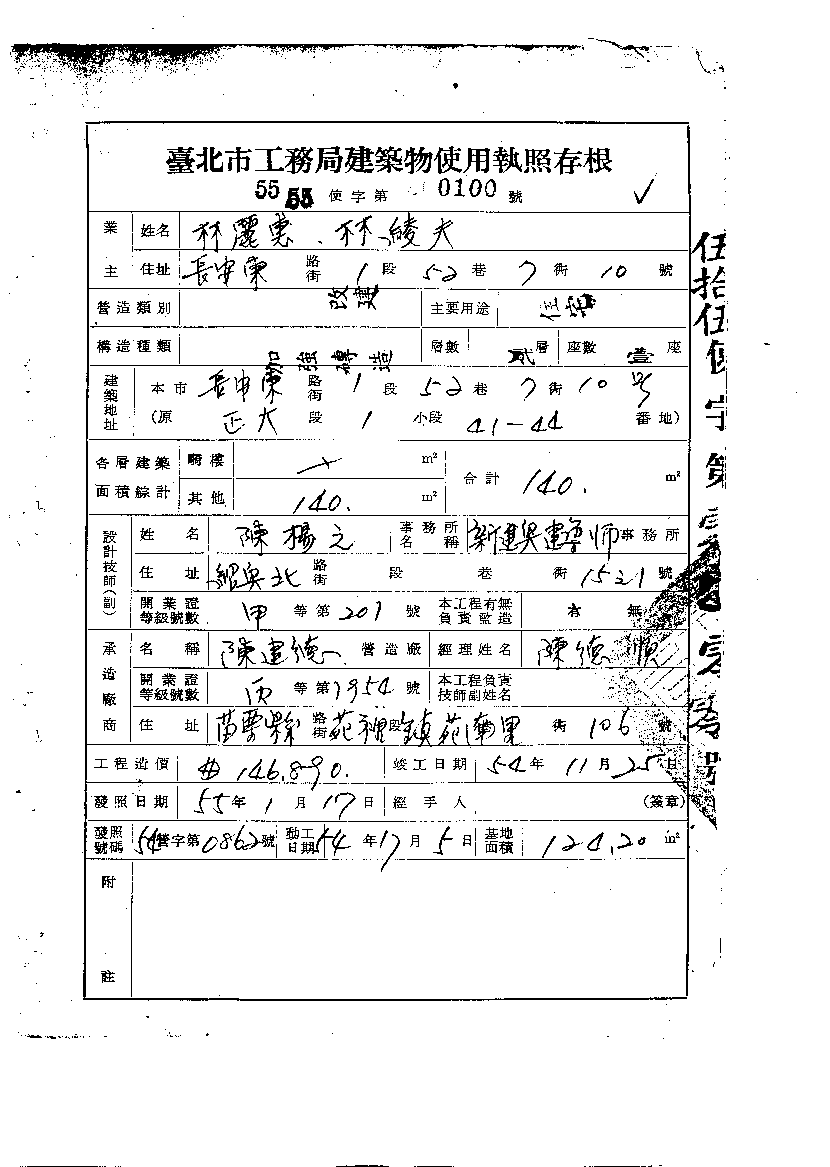 臺北市工務局建築物使用執照存根
55 55 使字第 0100 號
業主 姓名 林麗惠、林綾夫
住址 長安東 路街 1 段 52 巷 7 衖 10 號
營造類別 改建 主要用途 住宅
構造種類 加強磚造 層數 貳層 座數 壹座
建築地址 本市 長安東 路街 1 段 52 巷 7 衖 10 號
(原 正大 段 1 小段 41-44 番地)
各層建築面積綜計 騎樓 m² 合計 140. m²
其他 140. m²
設計技師(副) 姓名 陳楊之 事務所名稱 新建吳建築師事務所
住址 紹興北 路街 段 巷 衖 15-21 號
開業證等級號數 甲 等第 201 號 本工程有無負責監造 有 無
承造廠商 名稱 陳建德 營造廠 經理姓名 陳德順
開業證等級號數 丙 等第 1954 號 本工程負責技師副姓名
住址 苗栗縣 路街 苑裡 段 鎮苑南里 衖 106 號
工程造價 146.890. 竣工日期 54年 11月 25日
發照日期 55年 1月 17日 經手人 (簽章)
發照號碼 54營字第0862號 動工日期 54年17月5日 基地面積 124.20 m²
附註
伍拾伍使字第壹零零號